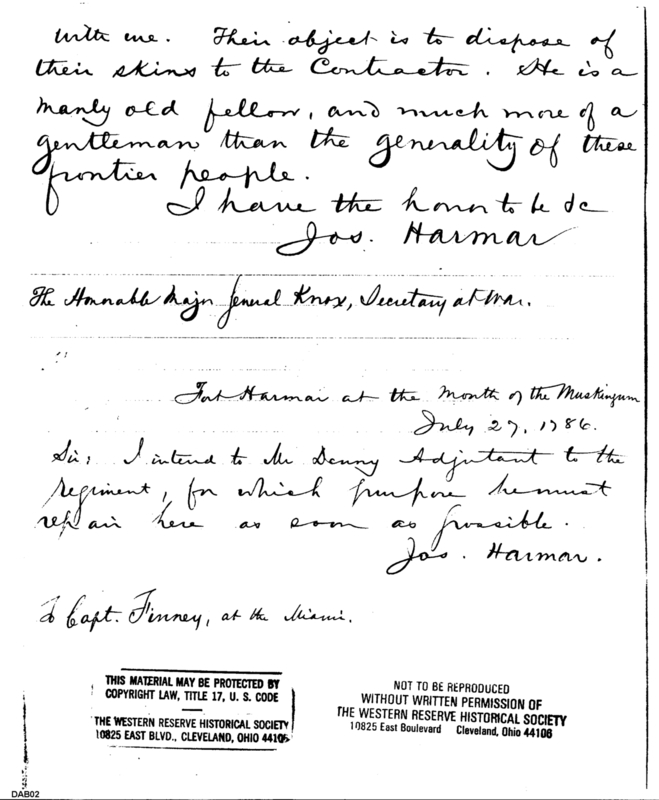 with me. Their object is to dispose of
their skins to the Contractor. He is a
manly old fellow, and much more of a
gentleman than the generality of these
frontier people.
I have the honor to be &c
Jos. Harmar
The Honorable Major General Knox, Secretary at War.
Fort Harmar at the Mouth of the Muskingum
July 27, 1786.
Sir; I intend to Mr Denny Adjutant to the
Regiment, for which purpose he must
repair here as soon as possible.
Jos. Harmar.
To Capt. Finney, at the Miami.
THIS MATERIAL MAY BE PROTECTED BY
COPYRIGHT LAW, TITLE 17, U. S. CODE
THE WESTERN RESERVE HISTORICAL SOCIETY
10825 EAST BLVD., CLEVELAND, OHIO 44106
NOT TO BE REPRODUCED
WITHOUT WRITTEN PERMISSION OF
THE WESTERN RESERVE HISTORICAL SOCIETY
10825 East Boulevard Cleveland, Ohio 44106
DAB02